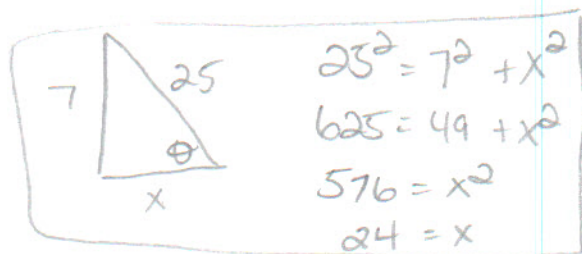 7
25
θ
x
25² = 7² + x²
625 = 49 + x²
576 = x²
24 = x